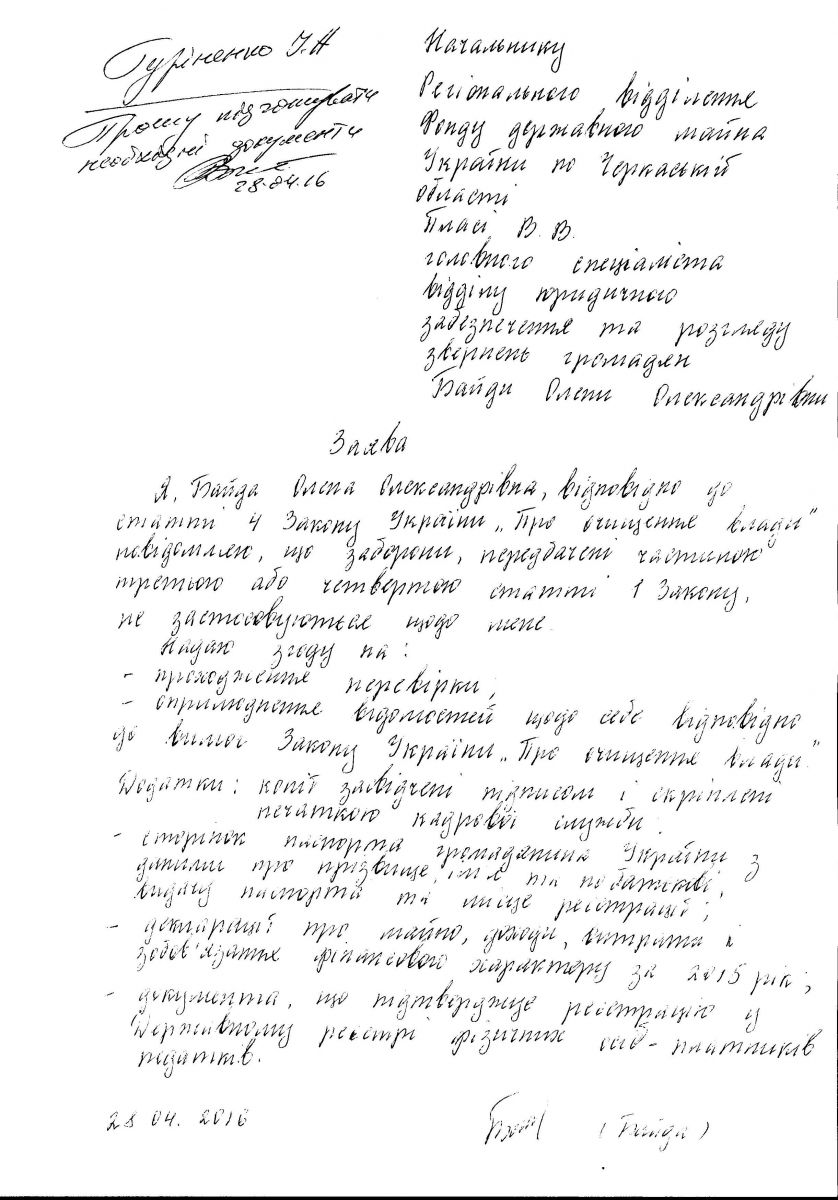 Гуріненко І.Н
Прошу підготувати
необхідні документи
28.04.16
Начальнику
Регіонального відділення
Фонду державного майна
України по Черкаській
області
Пласі В. В.
головного спеціаліста
відділу юридичного
забезпечення та розгляду
звернень громадян
Байди Олени Олександрівни
Заява
Я, Байда Олена Олександрівна, відповідно до
статті 4 Закону України „Про очищення влади"
повідомляю, що заборони, передбачені частиною
третьою або четвертою статті 1 Закону,
не застосовуються щодо мене.
Надаю згоду на:
- проходження перевірки;
- оприлюднення відомостей щодо себе відповідно
до вимог Закону України „Про очищення влади".
Додатки: копії завідчені підписом і скріплені
печаткою кадрової служби:
- сторінок паспорта громадянина України з
даними про прізвище, ім'я та по батькові,
видачу паспорта та місце реєстрації;
- декларації про майно, доходи, витрати і
зобов'язання фінансового характеру за 2015 рік;
- документа, що підтверджує реєстрацію у
Державному реєстрі фізичних осіб - платників
податків.
28 04. 2016
(Байда)